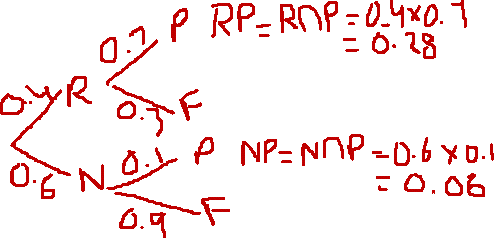 0.7 P RP=R∩P=0.4×0.7
= 0.28
0.4 R
0.3 F
0.6 N 0.1 P NP=N∩P=0.6×0.1
= 0.06
0.9 F